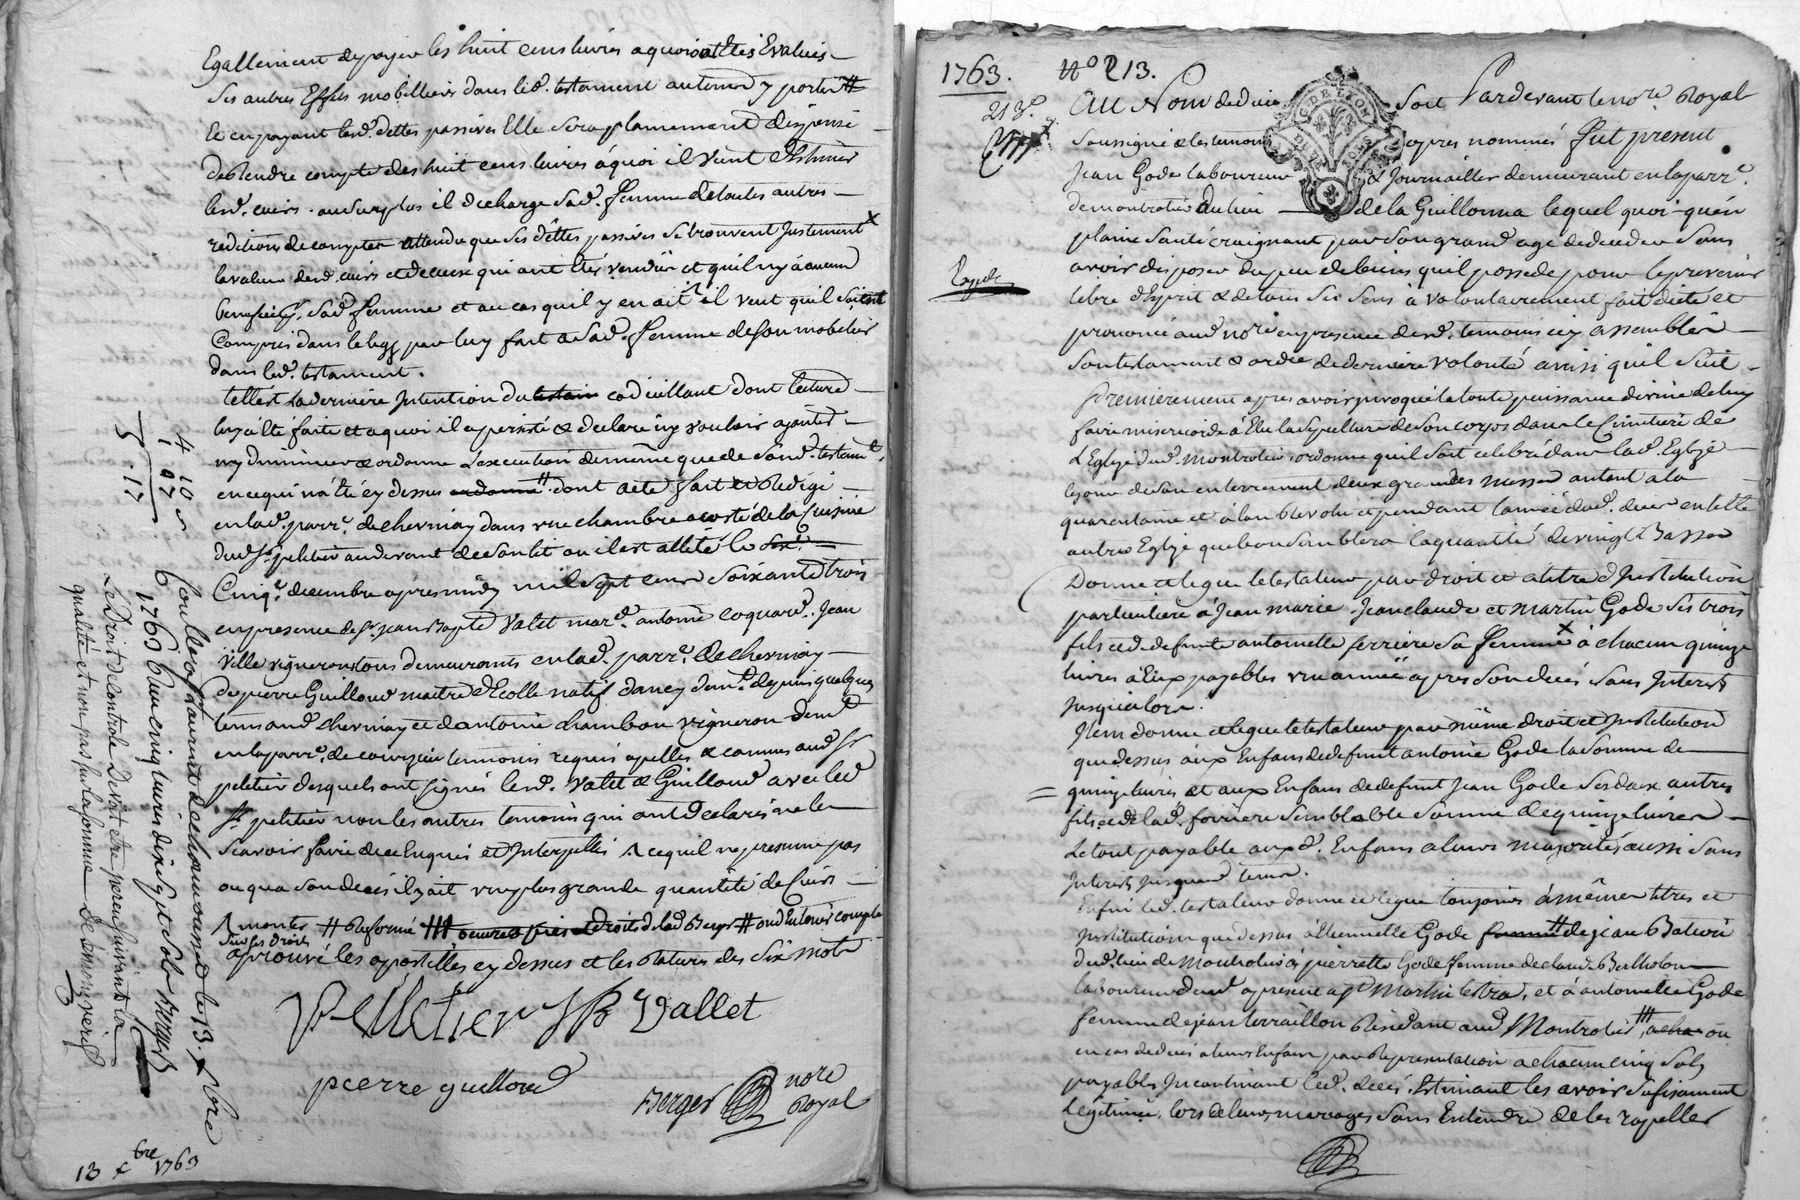 Egallement de payer les huit cens livres a quoi sont estés Evalués
Ses autres Effets mobilliers dans led. testament autemed y portés #
Et en payant lesd. dettes passives Elle sera plainement dispensé
de Rendre compte des huit cens livres à quoi il veut Estimer
lesd. cuirs. au surplus il decharge sad. femme de toutes autres
redition de compte attendu que ses dettes passives se trouvent Justement x
la valeur desd. cuirs et de ceux qui ont étés vendus et quil ny à aucun
benefice /. sad. femme et au cas quil y en ait il veut quil soient
Compris dans le legs par luy fait a sad. femme de son mobilier
dans led. testament.
telle est la derniere Intention du testa codicillant dont lecture
luy a été faite et a quoi il a persisté & declaré ny vouloir ajouter
ny diminuer & ordonne l'execution de meme que de sond. testamt.
en ce qui n'a été cy dessus ordonné # dont acte fait et Redigé
en lad. parr. de chervinay dans une chambre a costé de la Cuisine
dud. Sr pelitier au devant de son lit ou il est allité le Six.
Cinq. decembre apres midy mil sept cens soixante trois
en presence de Sr. Jean Bapte Valet mard. antoine Coquard. Jean
Ville vignerons tous demeurants en lad. parr. de chervinay
de pierre Guilloud maitre d'Ecolle natif dancy demt. depuis quelques
tems aud. chervinay et d'antoine chambou vigneron demt
en la parr. de courzieu temoins requis apellés & connus aud. Sr
pelitier desquels ont signés lesd. Valet & Guilloud avec led
Sr pelitier non les autres temoins qui ont declarés ne le
scavoir faire de ce Enquis et Interpellés /\ ce quil ne presume pas
ou qua son deces il y ait une plus grande quantité de Cuirs
/\ monter # Reformé ### droits de lad. Berger # ou d'Entrer en compte
Sur ses droits
aprouvé les apostilles cy dessus et les ratures des six mots
Pelletier JB Vallet
pierre guilloud
Berger nore
Royal
4 10 s
1 07
5 . 17
Controllé a Launet de chamousset le 13. xbre
1763 Reçu cinq livres dix sept sols Berger
Le Droit de Controle Devait etre perçu suivant la
qualité et non pas sur la somme
13 xbre 1763
1763. No 213.
213e
Expedié
Au Nom de dieu soit Pardevant le nore Royal
Soussigné & les temoins apres nommés fut present
Jean Gode laboureur & Journallier demeurant en la parr.
de montrotier au lieu de la Guillonna lequel quoi-quen
plaine santé craignant par son grand age de deceder sans
avoir disposer du peu de biens quil possede pour le prevenir
libre d'Esprit & de tous ses sens à volontairement fait dicté et
prononcé aud. nore en presence desd. temoins icy assemblés
son testament & ordre de derniere volonté ainsi quil suit
Premierement apres avoir jnvoqué la toute puissance divine de luy
faire misericorde à Elu la sepulture de son corps dans le Cimitiere de
L'Eglize dud. Montrotier, ordonne quil soit celebré dans lad. Eglize
le jour de son enterrement deux grandes messes autant a la
quarantaine et à lan revolu et pendant lannée dud. deces en telle
autre Eglize que bon semblera la quantité de vingt Basses
Donne et legue le testateur par droit et a titre d'Institution
particuliere à Jean marie. Jean claude et martin Gode ses trois
fils et de defunte antoinette ferriere sa femme x à chacun quinze
livres à Eux payables une année apres son deces sans Interest
jusqu'alors.
Item donne et legue le testateur par même droit et Institution
que dessus aux Enfans de defunt antoine Gode la somme de
quinze livres et aux Enfans de defunt Jean Gode ses deux autres
fils et de lad. ferriere semblable somme de quinze livres
Le tout payable auxd. Enfans a leurs majorités aussi sans
Interest jusquaud. tems.
Enfin led. testateur donne et legue toujours à mêmes titres et
Institution que dessus à Etiennette Gode femme # de jean Bateon
dud. lieu de Montrotier à pierrette Gode femme de claude Berthelon
laboureur demt. a present a St Martin lestra, et à antoinette Gode
femme de jean terraillon Residant aud. Montrotier ### a cha ou
en cas de deces a leurs Enfans par Representation a chacun cinq sols
payables Incontinant led. deces. Estimant les avoir sufisament
Legitimée, lors de leurs mariages sans Entendre de les rapeller